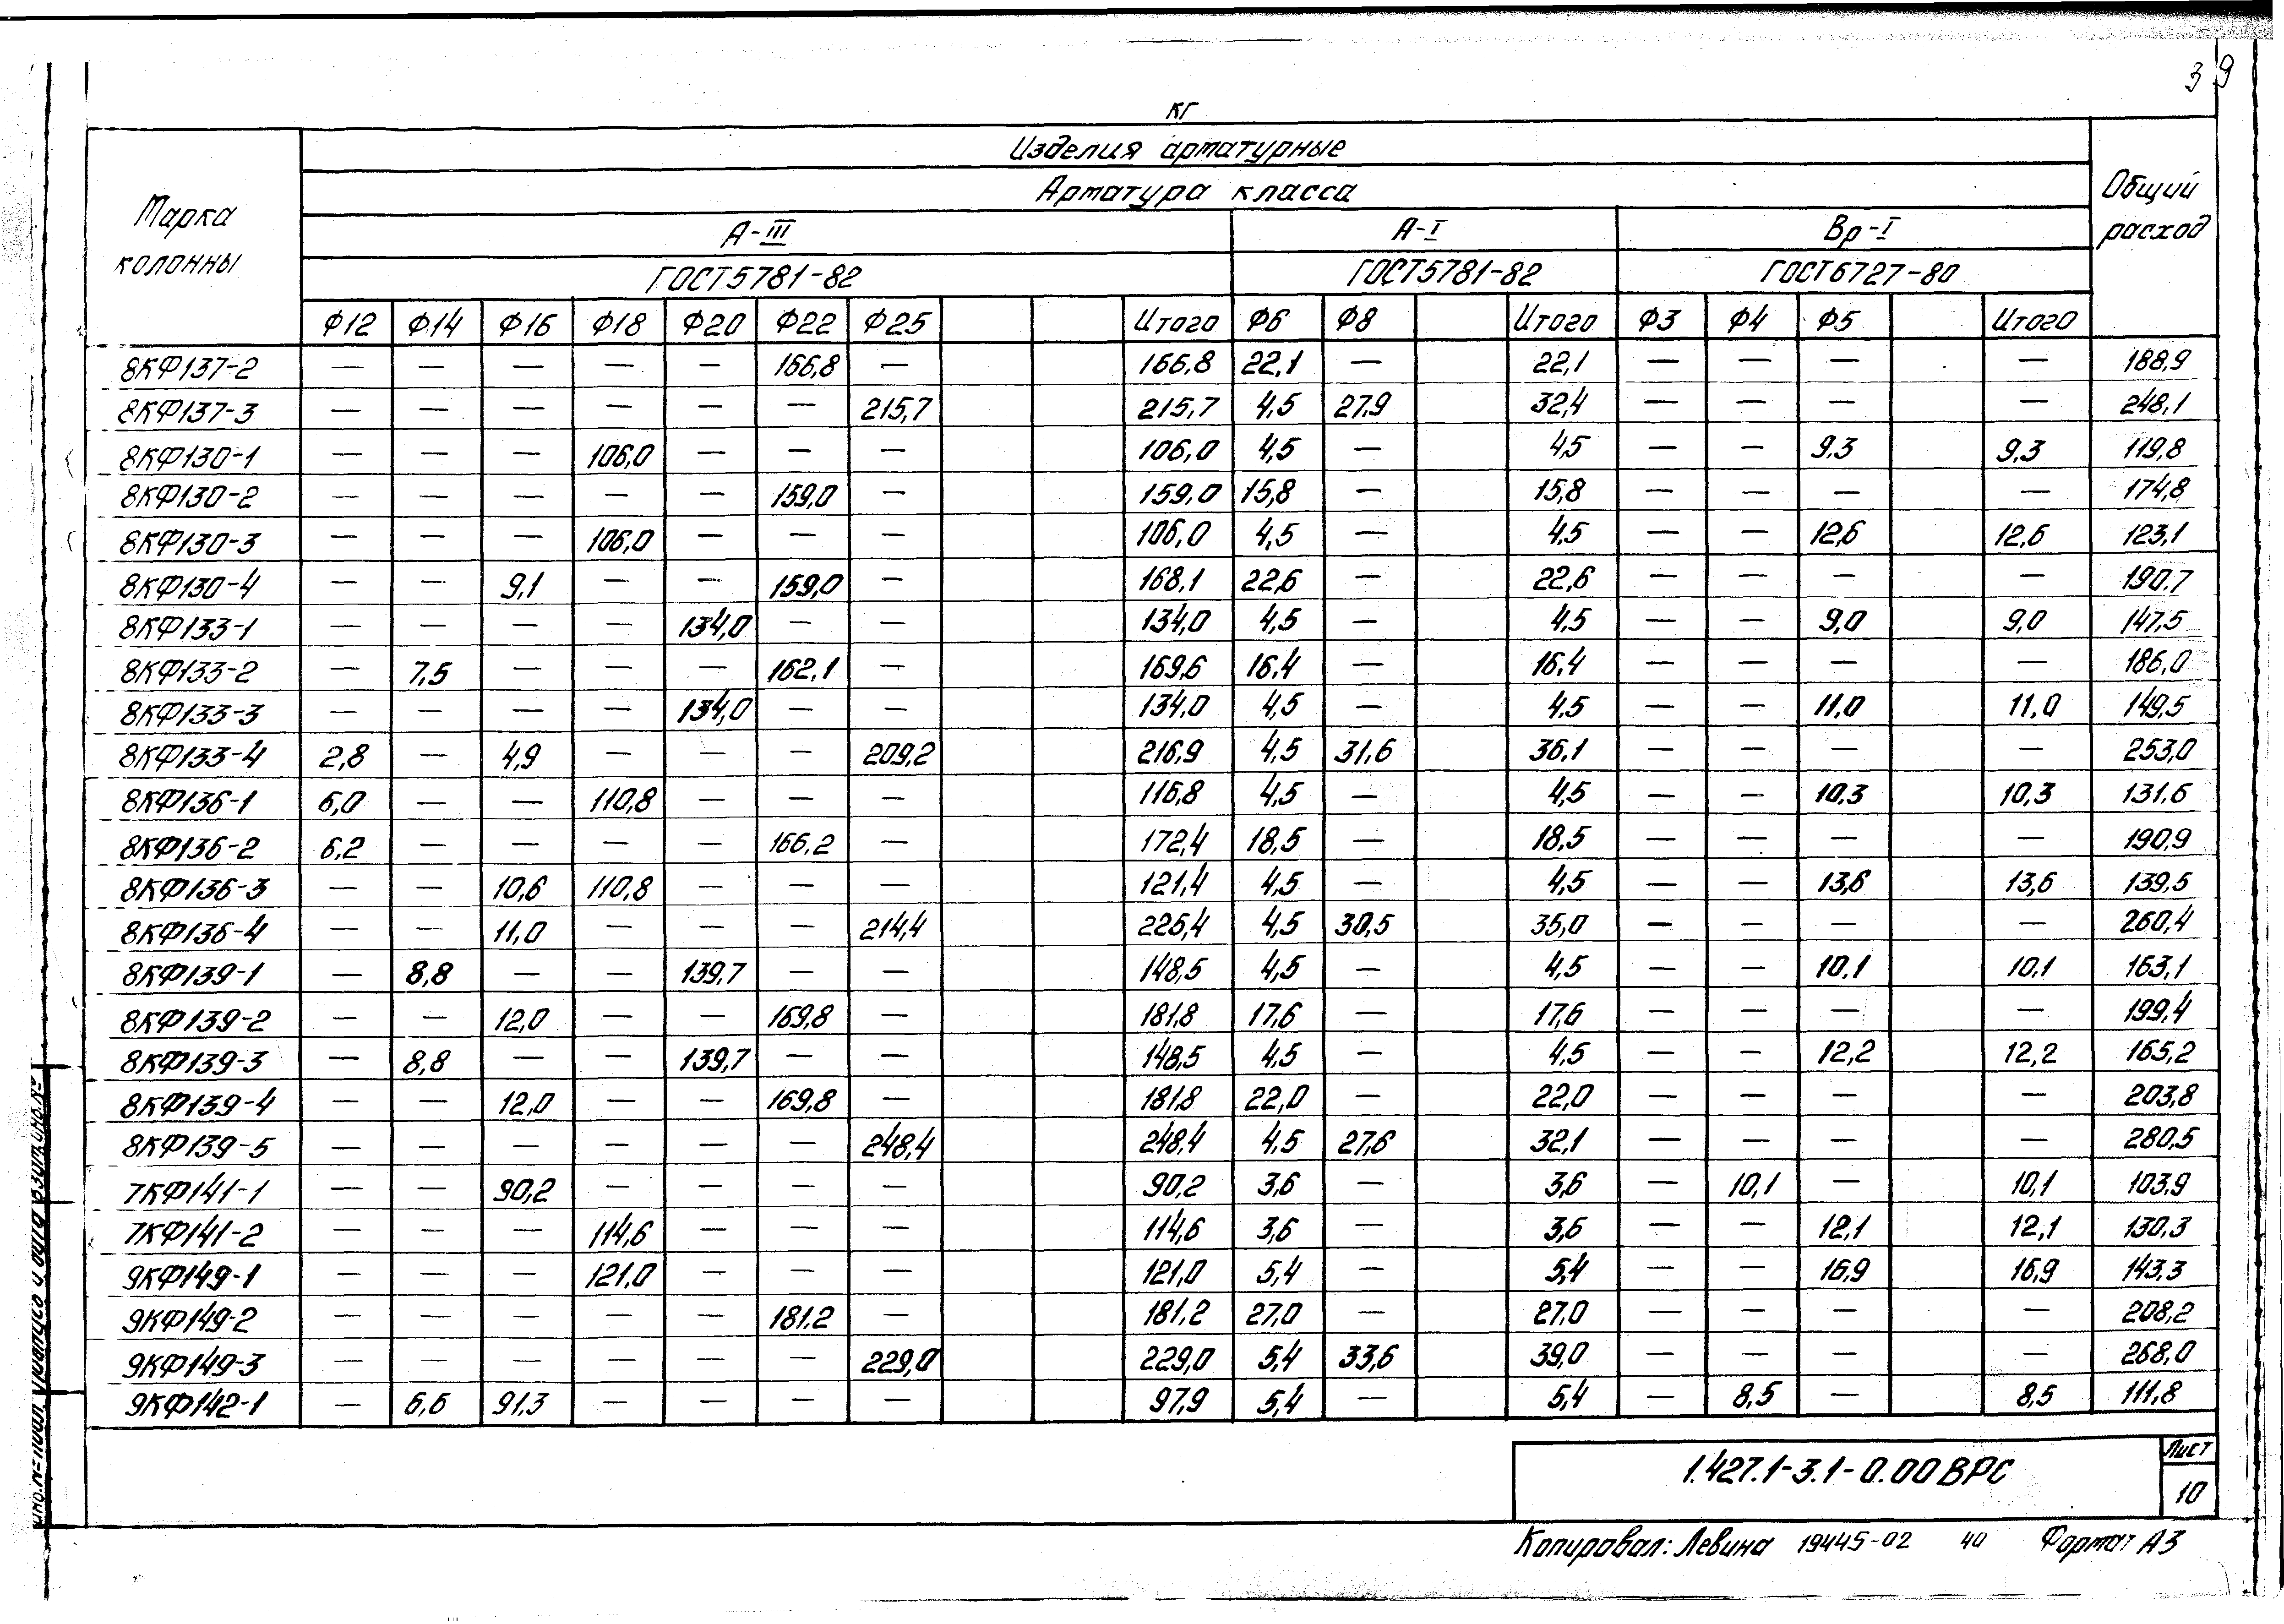 39
кг
Марка колонны Изделия арматурные Общий расход
Арматура класса
А-III А-I Вр-I
ГОСТ5781-82 ГОСТ5781-82 ГОСТ6727-80
Ф12 Ф14 Ф16 Ф18 Ф20 Ф22 Ф25 Итого Ф6 Ф8 Итого Ф3 Ф4 Ф5 Итого
8КФ137-2 — — — — — 166,8 — 166,8 22,1 — 22,1 — — — — 188,9
8КФ137-3 — — — — — — 215,7 215,7 4,5 27,9 32,4 — — — — 248,1
8КФ130-1 — — — 106,0 — — — 106,0 4,5 — 4,5 — — 9,3 9,3 119,8
8КФ130-2 — — — — — 159,0 — 159,0 15,8 — 15,8 — — — — 174,8
8КФ130-3 — — — 106,0 — — — 106,0 4,5 — 4,5 — — 12,6 12,6 123,1
8КФ130-4 — — 9,1 — — 159,0 — 168,1 22,6 — 22,6 — — — — 190,7
8КФ133-1 — — — — 134,0 — — 134,0 4,5 — 4,5 — — 9,0 9,0 147,5
8КФ133-2 — 7,5 — — — 162,1 — 169,6 16,4 — 16,4 — — — — 186,0
8КФ133-3 — — — — 134,0 — — 134,0 4,5 — 4,5 — — 11,0 11,0 149,5
8КФ133-4 2,8 — 4,9 — — — 209,2 216,9 4,5 31,6 36,1 — — — — 253,0
8КФ136-1 6,0 — — 110,8 — — — 116,8 4,5 — 4,5 — — 10,3 10,3 131,6
8КФ136-2 6,2 — — — — 166,2 — 172,4 18,5 — 18,5 — — — — 190,9
8КФ136-3 — — 10,6 110,8 — — — 121,4 4,5 — 4,5 — — 13,6 13,6 139,5
8КФ136-4 — — 11,0 — — — 214,4 225,4 4,5 30,5 35,0 — — — — 260,4
8КФ139-1 — 8,8 — — 139,7 — — 148,5 4,5 — 4,5 — — 10,1 10,1 163,1
8КФ139-2 — — 12,0 — — 169,8 — 181,8 17,6 — 17,6 — — — — 199,4
8КФ139-3 — 8,8 — — 139,7 — — 148,5 4,5 — 4,5 — — 12,2 12,2 165,2
8КФ139-4 — — 12,0 — — 169,8 — 181,8 22,0 — 22,0 — — — — 203,8
8КФ139-5 — — — — — — 248,4 248,4 4,5 27,6 32,1 — — — — 280,5
7КФ141-1 — — 90,2 — — — — 90,2 3,6 — 3,6 — 10,1 — 10,1 103,9
7КФ141-2 — — — 114,6 — — — 114,6 3,6 — 3,6 — — 12,1 12,1 130,3
9КФ149-1 — — — 121,0 — — — 121,0 5,4 — 5,4 — — 16,9 16,9 143,3
9КФ149-2 — — — — — 181,2 — 181,2 27,0 — 27,0 — — — — 208,2
9КФ149-3 — — — — — — 229,0 229,0 5,4 33,6 39,0 — — — — 268,0
9КФ142-1 — 6,6 91,3 — — — — 97,9 5,4 — 5,4 — 8,5 — 8,5 111,8
1.427.1-3.1-0.00ВРС
Лист
10
Копировал: Левина 19445-02 40 Формат А3
Инв.№ подл. Подпись и дата Взам.инв.№